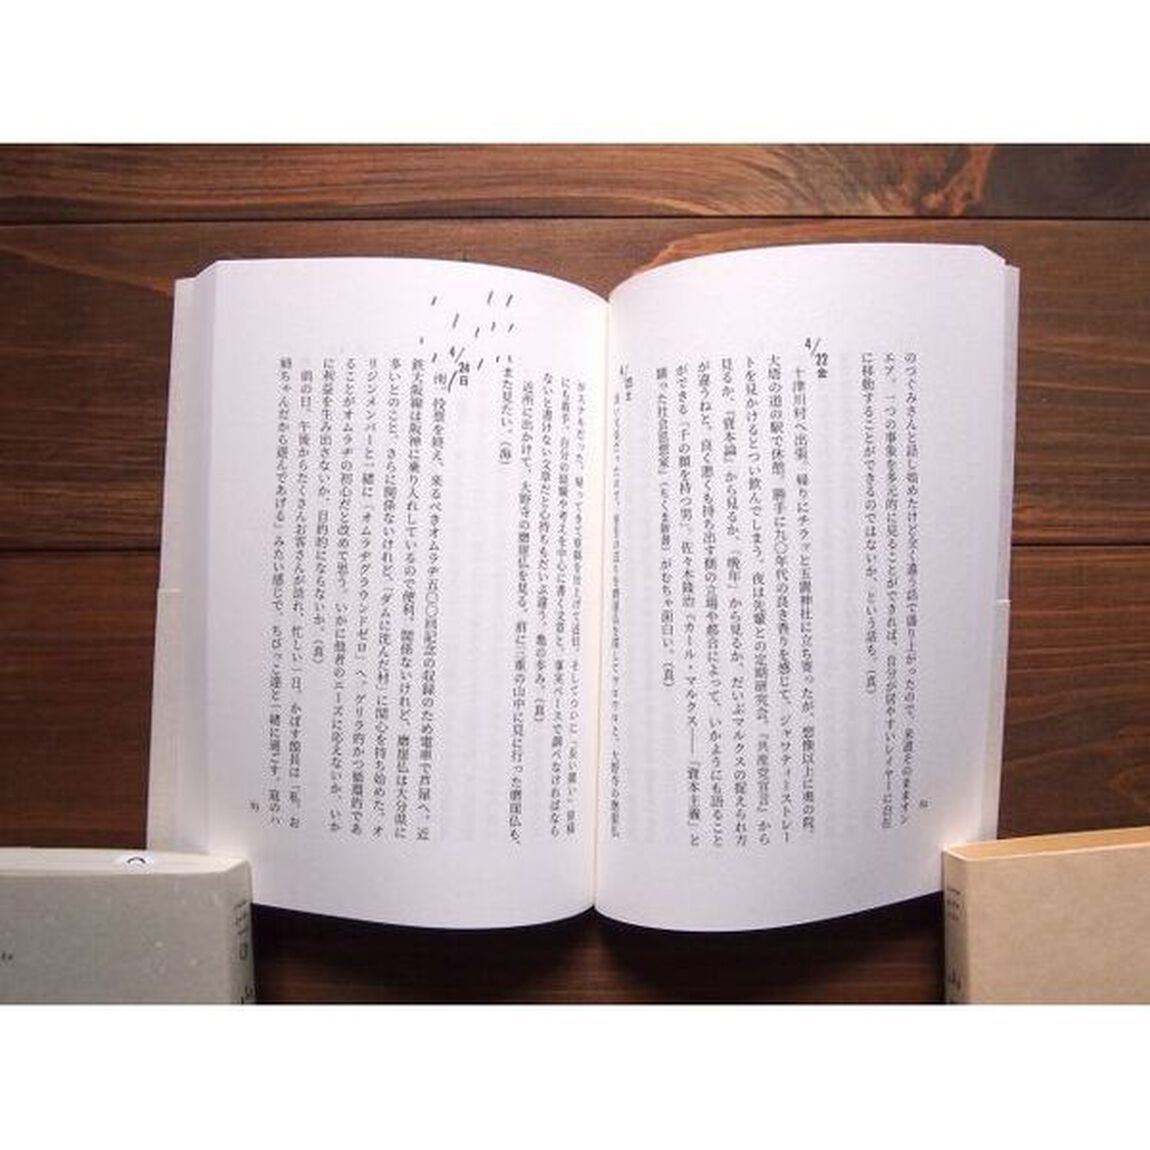 のつぐみさんと話し始めたけど全く違う話で盛り上がったので、来週そのままオン
エア。一つの事象を多元的に見ることができれば、自分が居やすいレイヤーに自在
に移動することができるのではないか、という話も。（真）
4/22金
十津川村へ出張。帰りにチラッと玉置神社に立ち寄ったが、想像以上に奥の院。
大塔の道の駅で休憩。勝手に九〇年代の良き香りを感じて、ジャワティーストレー
トを見かけるとつい飲んでしまう。夜は先輩との定期研究会。『共産党宣言』から
見るか、『資本論』から見るか、「晩年」から見るか、だいぶマルクスの捉えられ方
が違うねと。良く悪くも持ち出す側の立場や都合によって、いかようにも語ること
ができる「千の顔を持つ男」。佐々木隆治『カール・マルクス――「資本主義」と
闘った社会思想家』（ちくま新書）がむちゃ面白い。（真）
がステキだった。帰ってきて原稿を仕上げて送付。そしてついに「長い願い」
にも着手。自分の経験や考えを中心に書く文章と、事実ベースで調べなければなら
ないと書けない文章だと心持ちもだいぶ違う。亀の歩み。（真）
近所に出かけて、大野寺の磨崖仏を見る。前に三重の山中に見に行った磨崖仏も、
また見たい。（海）
4/24日
投票を終え、来るべきオムラヂ五〇〇回記念の収録のため電車で芦屋へ。近
鉄大阪線は阪神に乗り入れしているので便利。関係ないけれど、磨崖仏は大分県に
多いとのこと。さらに関係ないけれど、「ダムに沈んだ村」に関心を持ち始めた。オ
リジンメンバーと一緒に「オムラヂグラウンドゼロ」へ。ゲリラ的かつ循環的であ
ることがオムラヂの初心だと改めて思う。いかに他者のニーズに応えないか、いか
に利益を生み出さないか、目的的にならないか。（真）
雨の日。午後からたくさんお客さんが訪れ、忙しい一日。かぼす館長は「私、お
姉ちゃんだから遊んであげる」みたい感じで、ちびっこ達と一緒に過ごす。庭のハ